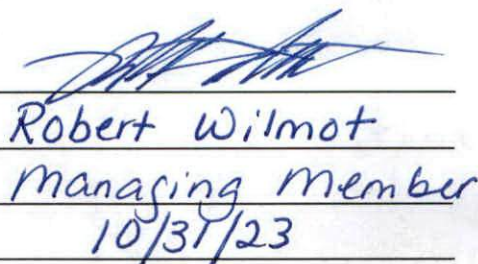 Robert Wilmot
Managing Member
10/31/23